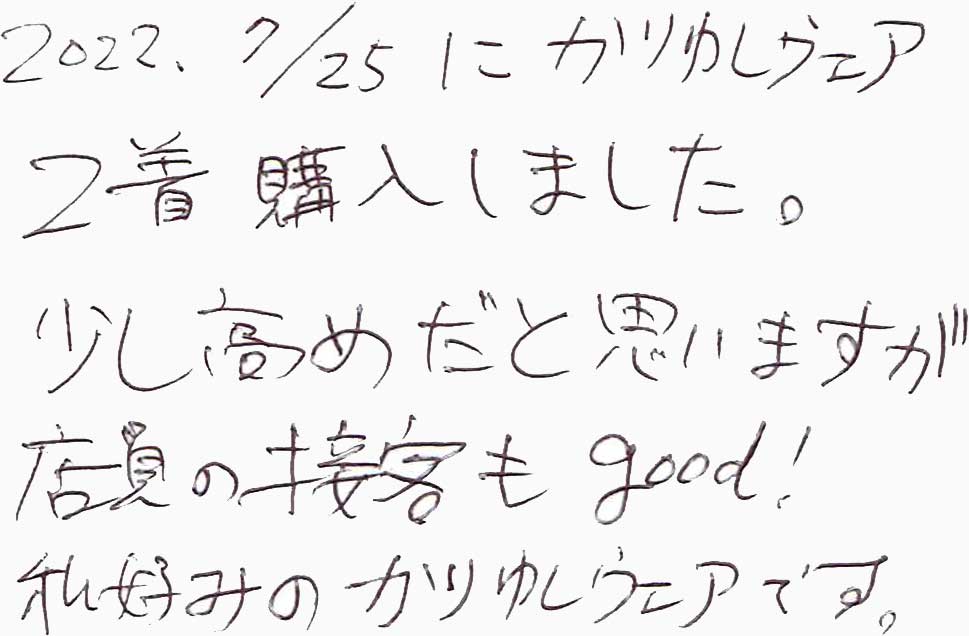 2022. 7/25 に かりゆしウェア
2着 購入しました。
少し高めだと思いますが
店員の接客も good!
私好みの かりゆしウェアです。